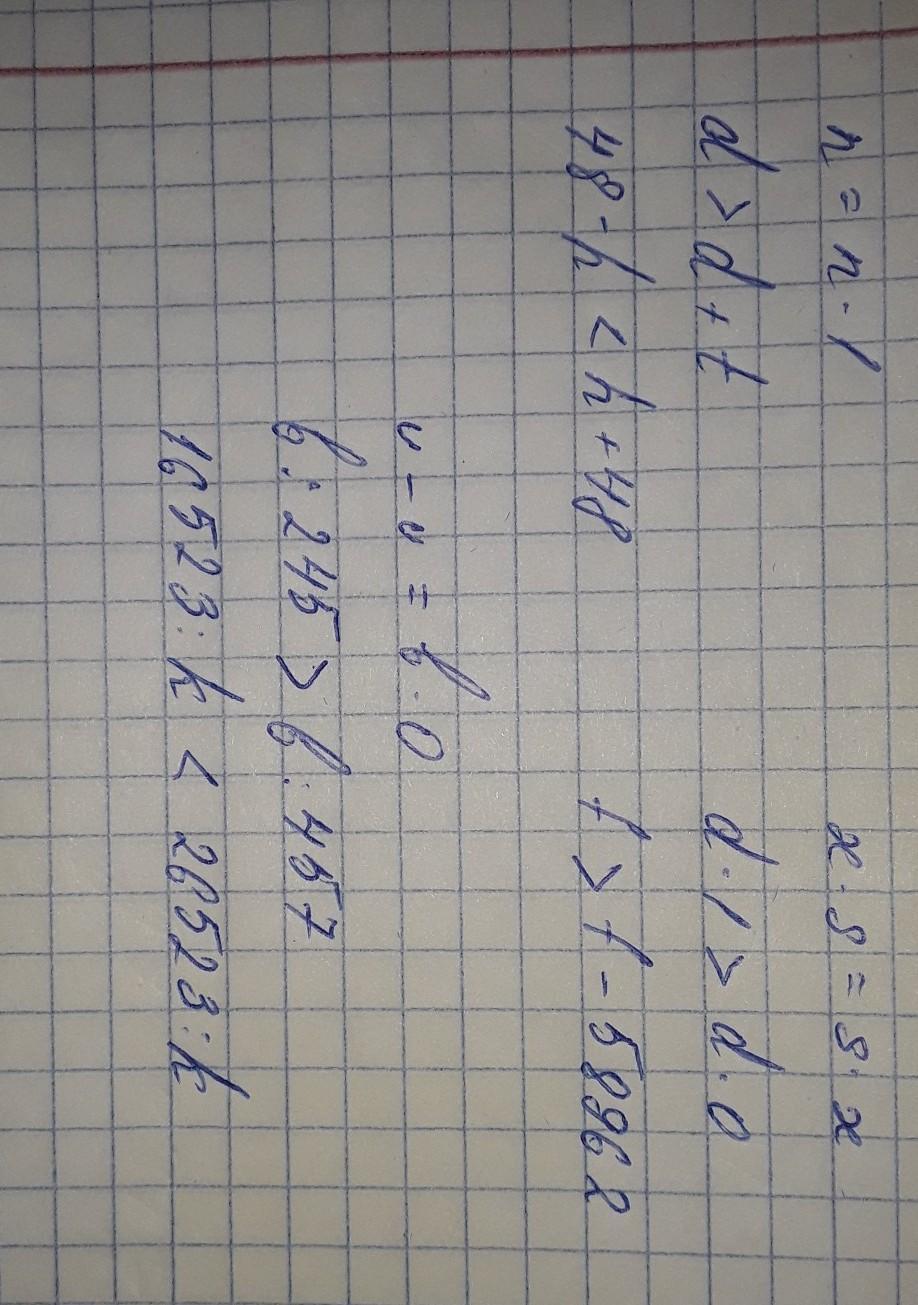 n = n · 1 x · s = s · x
d > d + t d · 1 > d · 0
48 - h < h + 48 f > f - 58962
v - v = b · 0
b : 245 > b : 457
16523 : k < 26523 : k